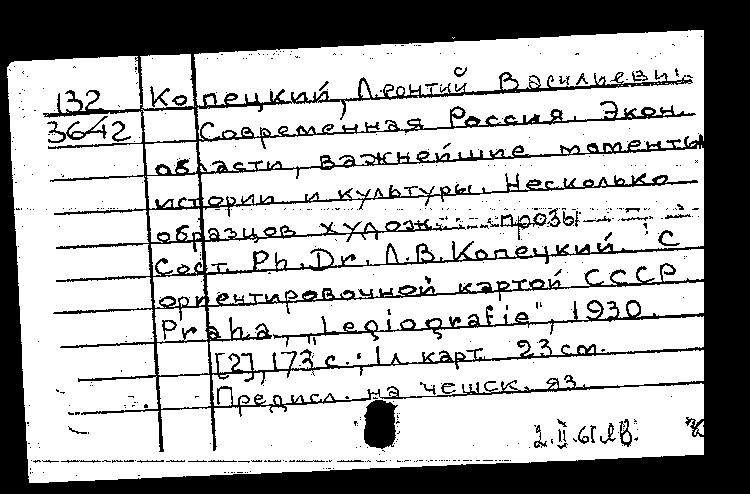 132 Копецкий, Леонтий Васильевич.
3642 Современная Россия. Экон.
области, важнейшие моменты
истории и культуры. Несколько
образцов худож. прозы
Сост. Ph.Dr. Л.В. Копецкий. С
ориентировочной картой СССР.
Praha, "Legiografie", 1930.
[2], 173 с.; 1л карт. 23 cm.
Предисл. на чешск. яз.
2.II.61